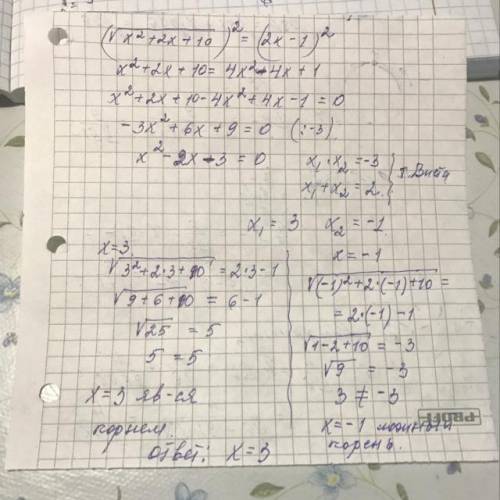 (√x²+2x+10)² = (2x-1)²
x²+2x+10 = 4x²-4x+1
x²+2x+10-4x²+4x-1=0
-3x²+6x+9=0 (:-3)
x²-2x-3=0
x₁·x₂=-3
x₁+x₂=2
} т. Виета
x₁=3 x₂=-1
x=3
√3²+2·3+10 = 2·3-1
√9+6+10 = 6-1
√25 = 5
5 = 5
x=3 яв-ся
корнем.
x=-1
√(-1)²+2·(-1)+10 =
=2·(-1)-1
√1-2+10 = -3
√9 = -3
3 ≠ -3
x=-1
корень.
Ответ: x=3
PROFF